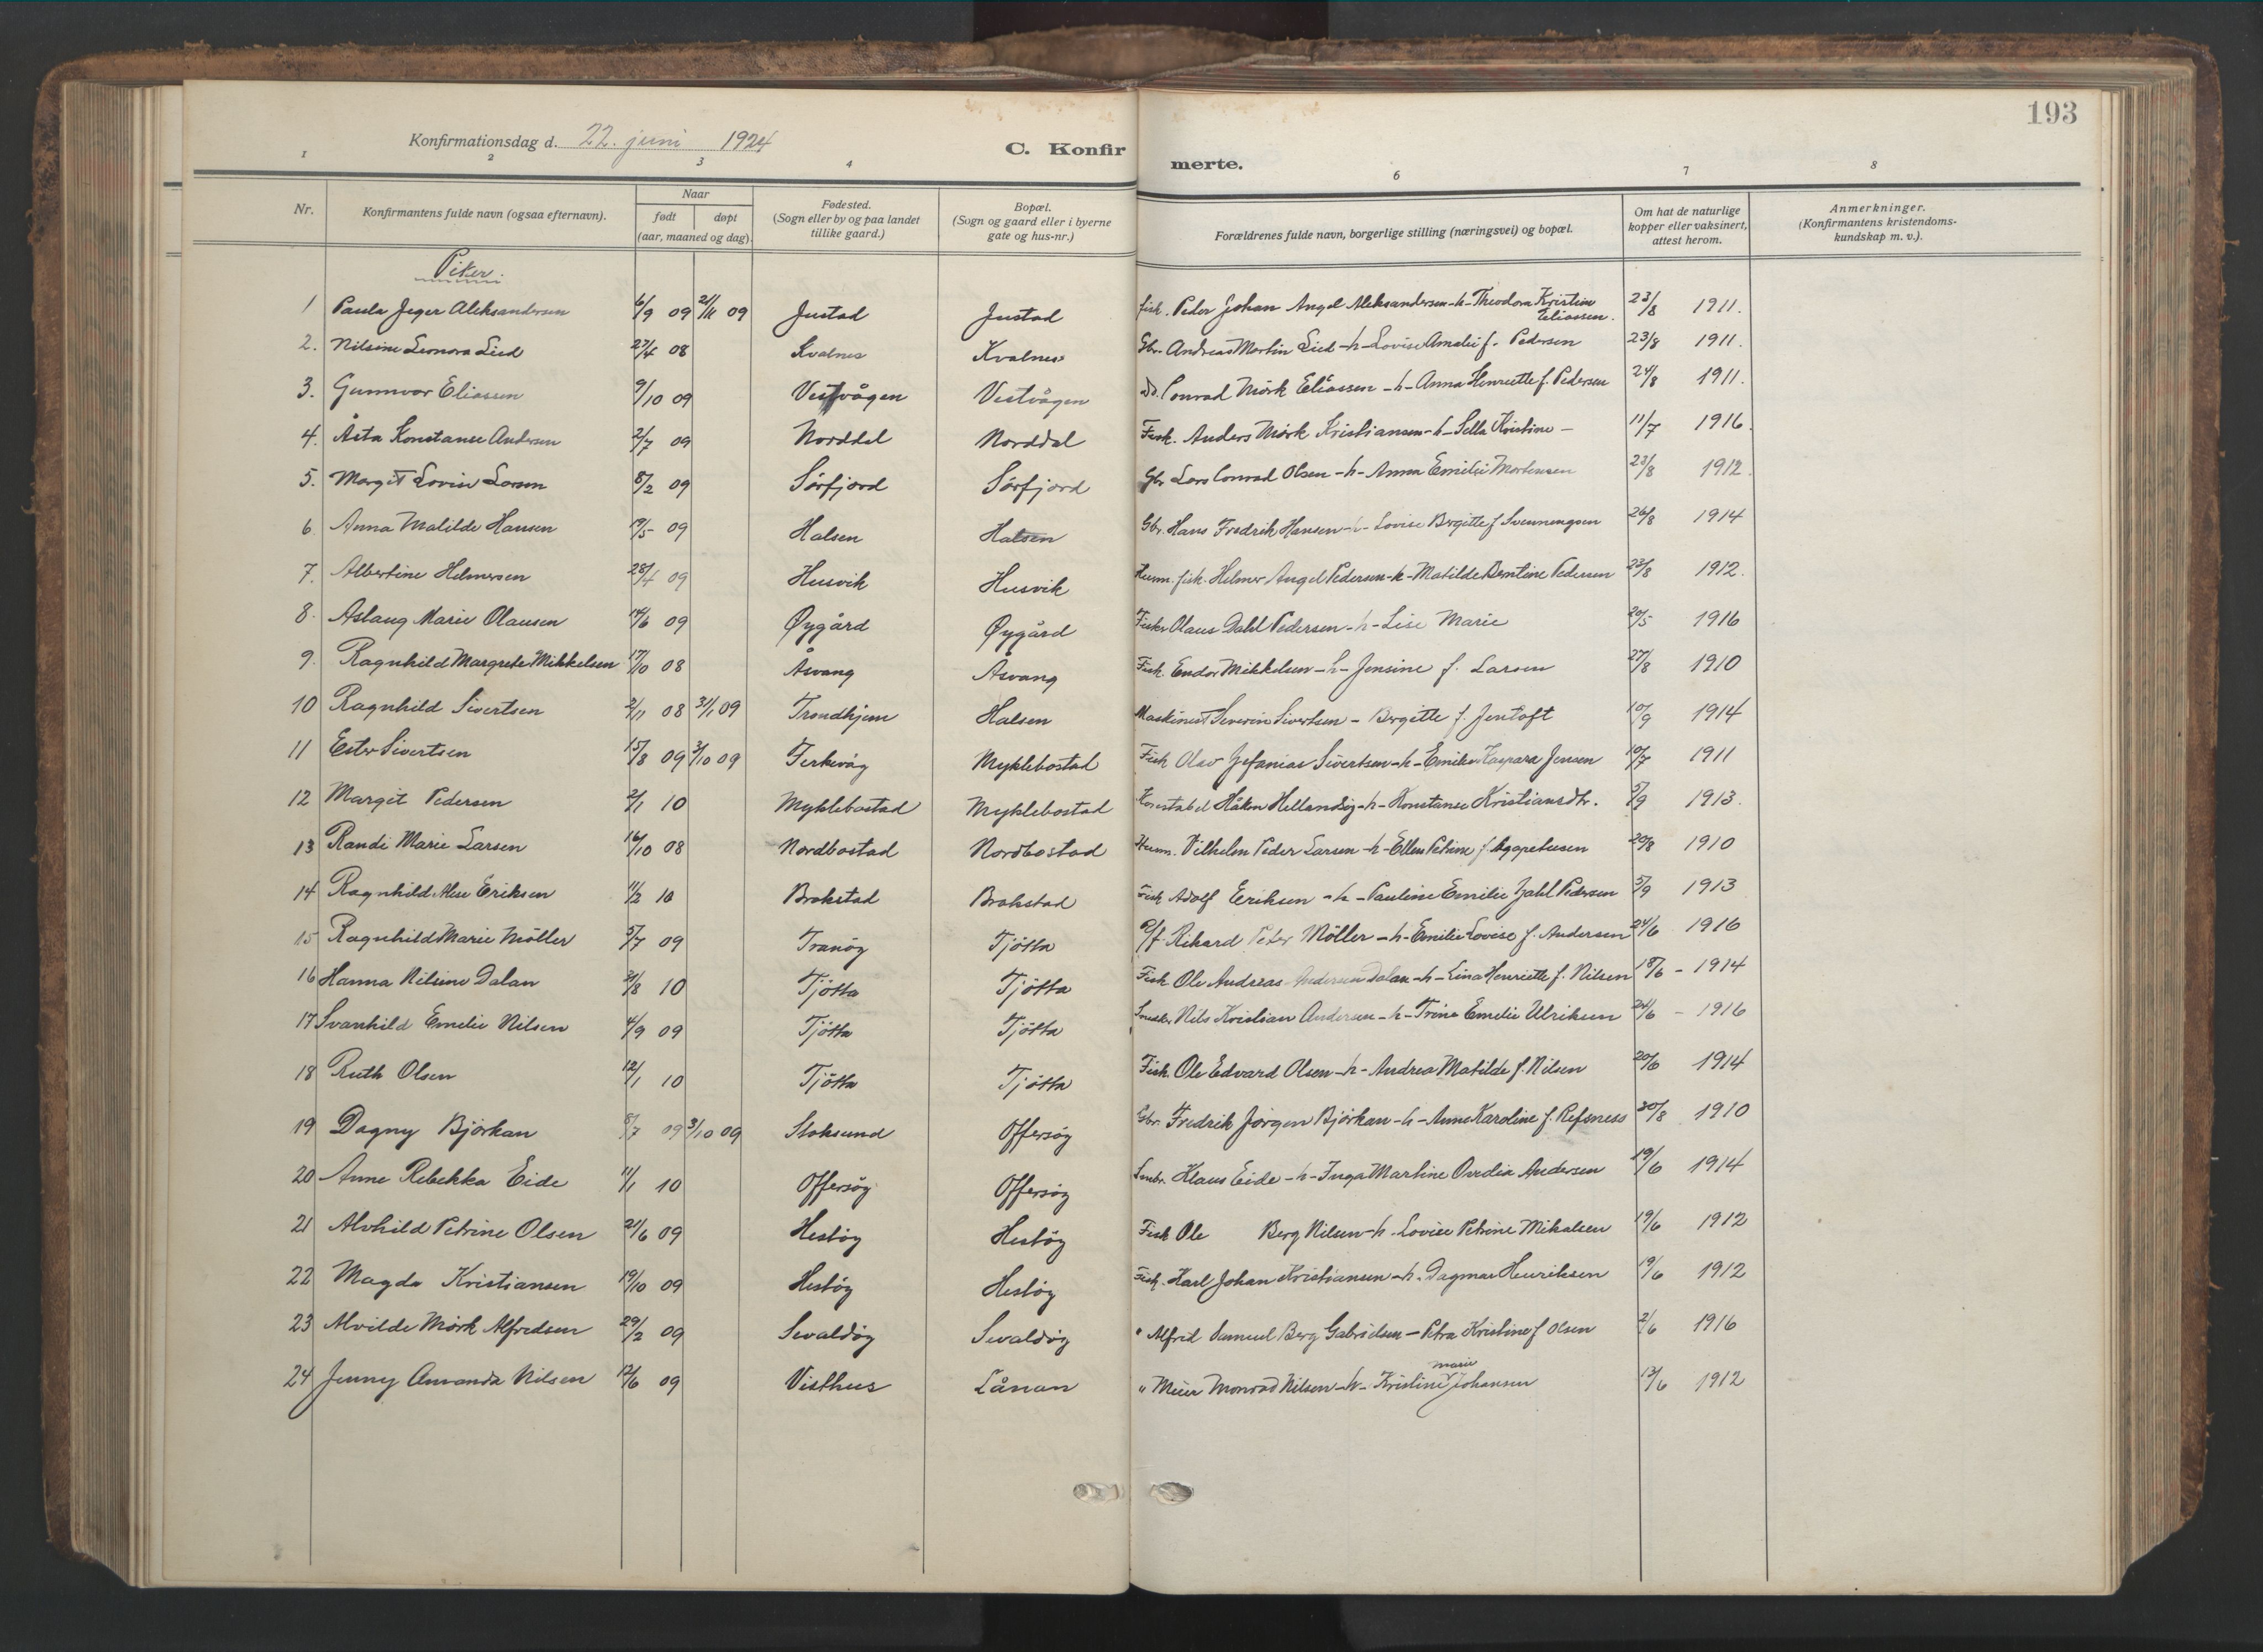 193
Konfirmationsdag d. 22. juni 1924
C. Konfirmerte.
1 2 3 4 6 7 8
Nr. Konfirmantens fulde navn (ogsaa efternavn). Naar født døpt (aar, maaned og dag). Fødested. (Sogn eller by og paa landet tillike gaard.) Bopæl. (Sogn og gaard eller i byerne gate og hus-nr.) Forældrenes fulde navn, borgerlige stilling (næringsvei) og bopæl. Om hat de naturlige kopper eller vaksinert, attest herom. Anmerkninger. (Konfirmantens kristendoms-kundskap m. v.).
Piker.
1 Paula Jeger Aleksandersen 6/9 09 21/11 09 Justad Justad fisk. Peder Johan Angel Aleksandersen - h - Theodora Kristine Eliassen. 23/8 1911.
2. Nilsine Leonora Lied 27/4 08 Kvalnes Kvalnes Gbr. Andreas Martin Lied - h - Lovise Amalie f. Pedersen 23/8 1911.
3. Gunnvor Eliassen 9/10 09 Vestvågen Vestvågen do. Conrad Mörk Eliassen - h - Anna Henriette f. Pedersen 24/8 1911.
4. Åsta Konstanse Andersen 2/7 09 Norddal Norddal Fisk. Anders Mörk Kristiansen - h - Sella Kristine - 11/7 1916.
5. Margit Lovise Larsen 8/2 09 Sörfjord Sörfjord Gbr Lars Conrad Olsen - h - Anna Emilie Mortensen 23/8 1912.
6 Anna Matilde Hansen 19/5 09 Halsen Halsen Gbr. Hans Fredrik Hansen - h - Lovise Birgitte f Svenningsen 26/8 1914
7. Albertine Helmersen 28/4 09 Husvik Husvik Husm. fisk. Helmer Angel Pedersen - h - Matilde Bentine Pedersen 23/8 1912.
8. Aslaug Marie Olausen 14/6 09 Øygård Øygård Fisker Olaus Dahl Pedersen - h - Lise Marie 20/5 1916
9. Ragnhild Margrete Mikkelsen 17/10 08 Åsvang Åsvang Fisk. Endor Mikkelsen - h - Jensine f. Larsen 27/8 1910
10 Ragnhild Sivertsen 2/11 08 31/1 09 Trondhjem Halsen Maskinist Severin Sivertsen - Bergitte f. Jentoft 10/9 1914
11 Ester Sivertsen 15/8 09 3/10 09 Terkvåg Myklebostad Fisk Olav Zefanias Sivertsen - h - Emilie Kaspara Jensen 10/7 1911
12 Margit Pedersen 2/1 10 Myklebostad Myklebostad Konstabel Håkon Hellandsjø - h - Konstanse Kristiansdtr. 5/9 1913.
13 Randi Marie Larsen 16/10 08 Nordbostad Nordbostad Husm. Vilhelm Peder Larsen - h - Ellen Petrine f. Agapetusen 20/8 1910
14 Ragnhild Alise Eriksen 11/2 10 Brakstad Brakstad Fisk Adolf Eriksen - h - Pauline Emilie Zahl Pedersen 5/9 1913
15 Ragnhild Marie Möller 5/7 09 Tranöy Tjötta P/f. Rikard Peter Möller - h - Emilie Lovise f. Andersen 24/6 1916
16 Hanna Nilsine Dalan 31/8 10 Tjötta Tjötta Fisk Ole Andreas Andersen Dalan - h - Lina Henriette f. Nilsen 18/6 - 1914
17 Svanhild Emelie Nilsen 4/9 09 Tjötta Tjötta Nils Kristian Andersen - h - Trine Emelie Ulriksen 24/6 - 1916
18 Ruth Olsen 12/1 10 Tjötta Tjötta Fisk. Ole Edvard Olsen - h - Andrea Matilde f. Nilsen 20/6 1914
19 Dagny Björkan 8/7 09 3/10 09 Stoksund Offersöy Gbr. Fredrik Jörgen Björkan - h - Anne Karoline f. Refsness 30/8 1910
20 Anne Rebekka Eide 11/1 10 Offersöy Offersöy Smbr. Klaus Eide - h - Inga Martine Ovidia Andersen 19/6 1914
21 Alvhild Petrine Olsen 21/6 09 Hestöy Hestöy Fisk Ole Berg Nilsen - h - Lovise Petrine Mikalsen 19/6 1912
22 Magda Kristiansen 19/10 09 Hestöy Hestöy Fisk. Karl Johan Kristiansen - h - Dagmar Henriksen 19/6 1912
23 Alvilde Mörk Alfredsen 29/2 09 Sivaldöy Sivaldöy " Alfred Samuel Berg Gabrielsen - Petra Kristine f Olsen 2/6 1916
24 Jenny Amanda Nilsen 12/6 09 Visthus Lånan " Meier Monrad Nilsen - h - Kristine Marie Johansen 13/6 1912